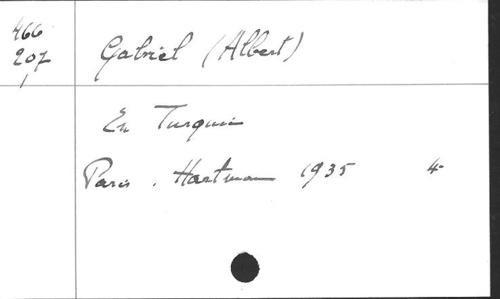 466
207
Gabriel (Albert)
En Turquie
Paris. Hartman 1935 4-